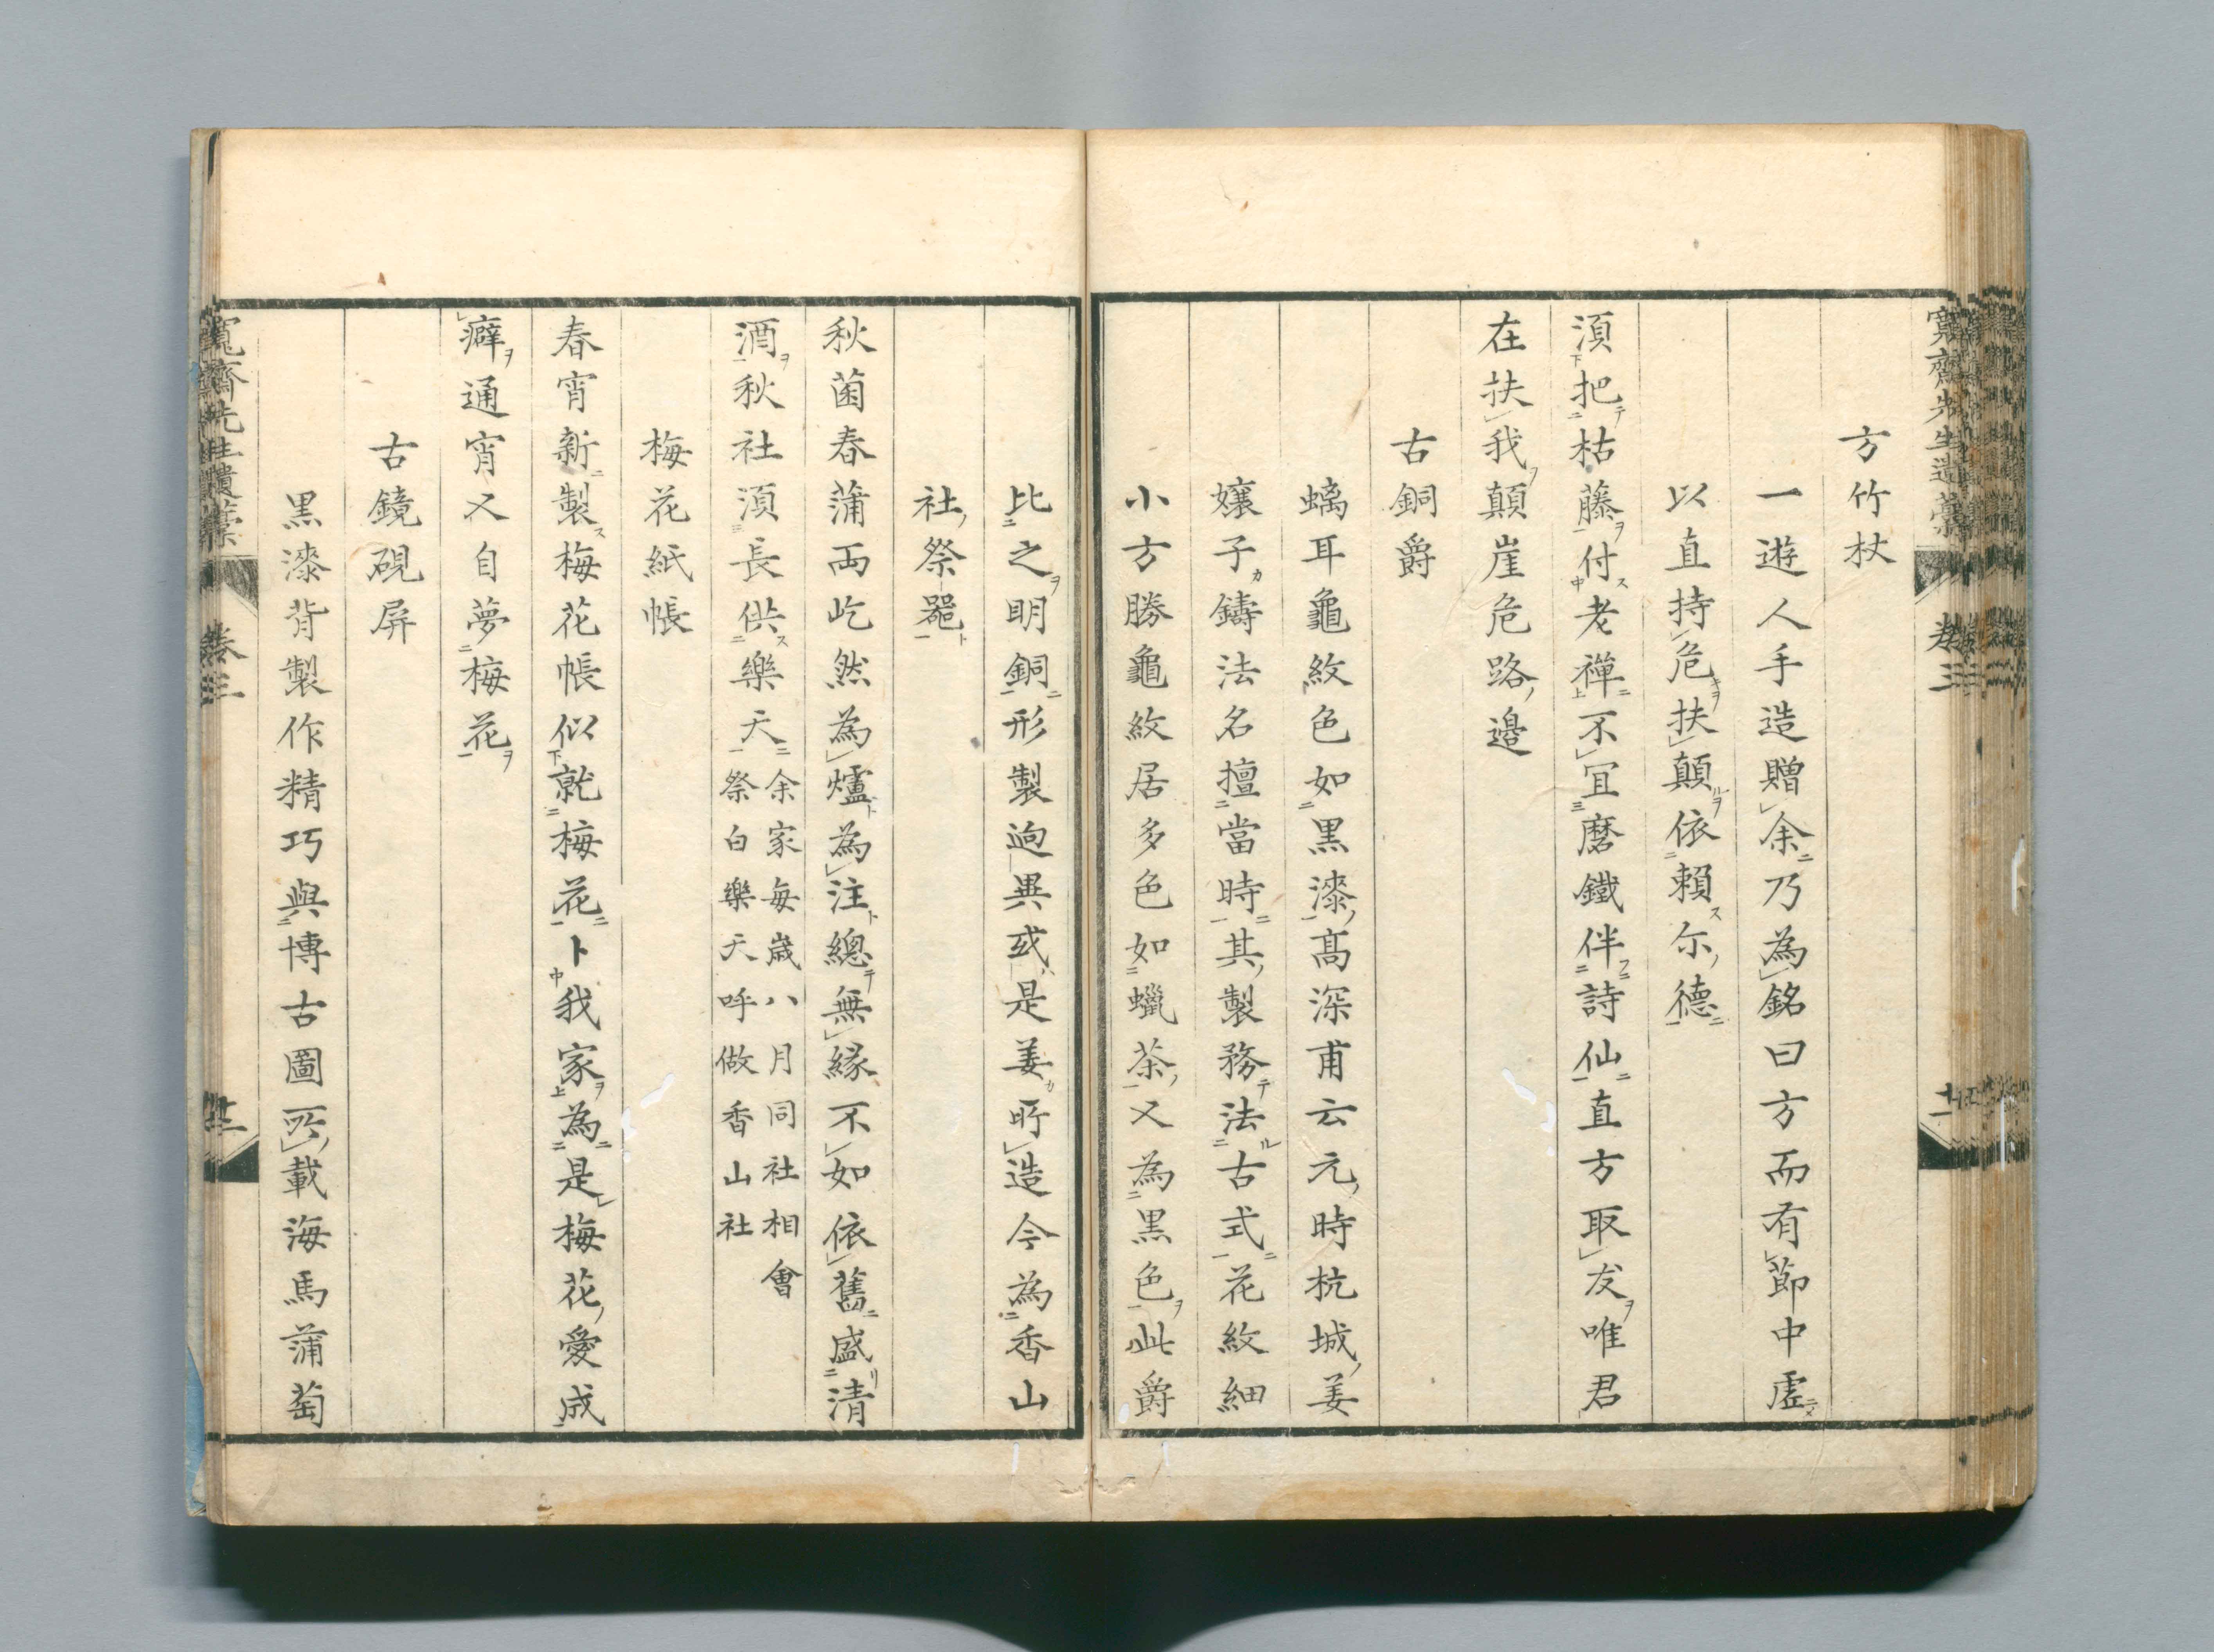 寬齋先生遺藁
卷三
方竹杖
一遊人手造贈余乃為銘曰方而有節中虛
以直持危扶顛依賴尓德
須把枯藤付老禪不宜磨鐵伴詩仙直方取友唯君
在扶我顛崖危路邊
古銅爵
螭耳龜紋色如黑漆高深甫云元時杭城姜
孃子鑄法名擅當時其製務法古式花紋細
小方勝龜紋居多色如蠟茶又為黑色此爵
比之明銅形製迥異或是姜所造今為香山
社祭器
秋菌春蒲両屹然為爐為注總無緣不如依舊盛清
酒秋社須長供樂天
余家每歲八月同社相會
祭白樂天呼做香山社
梅花紙帳
春宵新製梅花帳似就梅花卜我家為是梅花愛成
癖通宵又自夢梅花
古鏡硯屏
黒漆背製作精巧與博古圖所載海馬蒲萄
寬齋先生遺藁
卷三